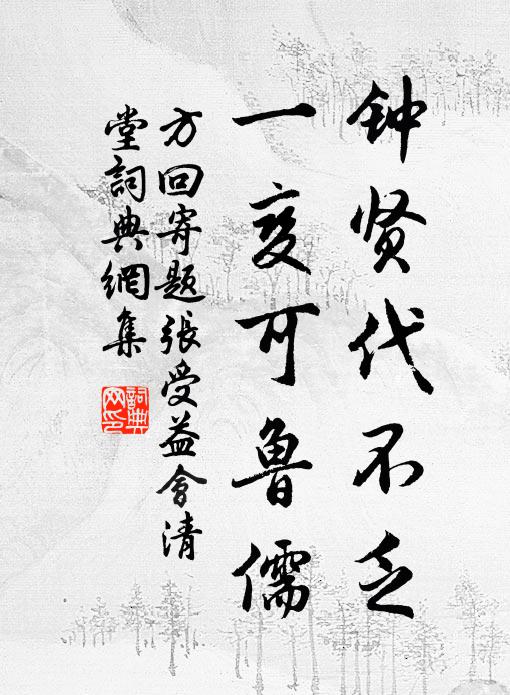 钟贤代不乏
一变可鲁儒
方回寄题张受益会清
堂词典网集
詞典
网印